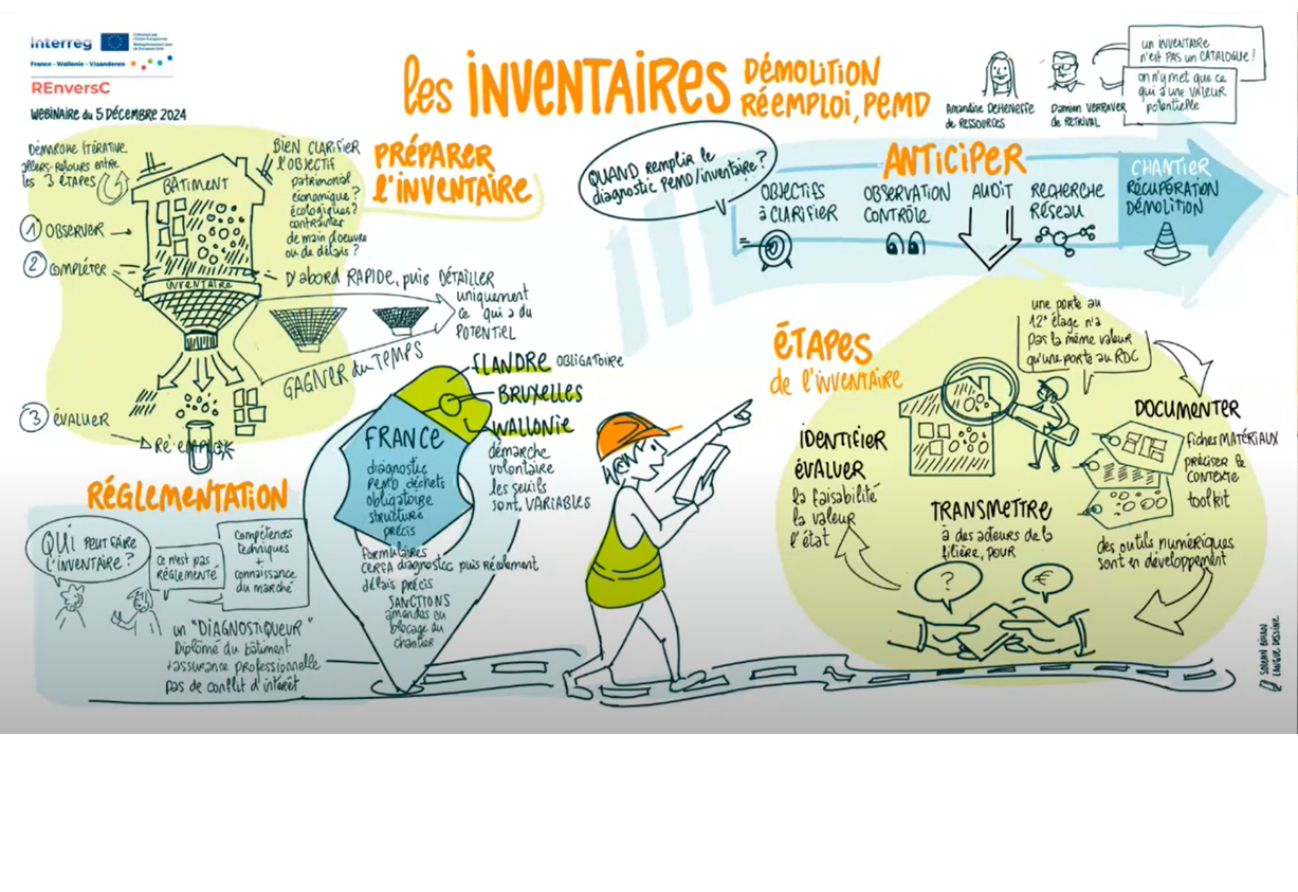 Interreg
France - Wallonie - Vlaanderen
REnversC
WEBINAIRE du 5 DÉCEMBRE 2024
les INVENTAIRES
DÉMOLITION
RÉEMPLOI, PEMD
Amandine DEHENEFFE
de RESSOURCES
Damien VERRAVER
de RETRIVAL
un INVENTAIRE
n'est PAS un CATALOGUE !
on n'y met que ce
qui a une VALEUR
potentielle
DÉMARCHE ITÉRATIVE
allers-retours entre
les 3 ÉTAPES
BÂTIMENT
BIEN CLARIFIER
l'OBJECTIF
patrimonial
économique ?
écologiques ?
contraintes
de main d'oeuvre
ou de délais ?
PRÉPARER
l'INVENTAIRE
1 OBSERVER
2 COMPLÉTER
INVENTAIRE
D'abord RAPIDE, puis DÉTAILLER
uniquement
ce qui a du
POTENTIEL
GAGNER du TEMPS
3 ÉVALUER
Ré-emploi
QUAND remplir le
diagnostic PEMD/inventaire ?
ANTICIPER
OBJECTIFS
à CLARIFIER
OBSERVATION
CONTRÔLE
AUDIT
RECHERCHE
RÉSEAU
CHANTIER
RÉCUPÉRATION
DÉMOLITION
RÉGLEMENTATION
QUI PEUT FAIRE
l'INVENTAIRE ?
ce n'est pas
RÉGLEMENTÉ
compétences
techniques
+
connaissance
du marché
un "DIAGNOSTIQUEUR"
Diplômé du bâtiment
+assurance professionnelle
pas de conflit d'intérêt
FRANCE
diagnostic
PEMD déchets
obligatoire
structure
précis
formulaires
CERFA diagnostic puis récolement
délais précis
SANCTIONS
amendes ou
blocage du
chantier
FLANDRE OBLIGATOIRE
BRUXELLES
WALLONIE
démarche
volontaire
les seuils
sont VARIABLES
ÉTAPES
de l'INVENTAIRE
une porte au
12e étage n'a
pas la même valeur
qu'une porte au RDC
IDENTIFIER
ÉVALUER
la faisabilité
la valeur
l'état
DOCUMENTER
fiches MATÉRIAUX
PRÉCISER le
CONTEXTE
toolkit
des outils numériques
sont en développement
TRANSMETTRE
à des acteurs de la
filière, POUR
?
€